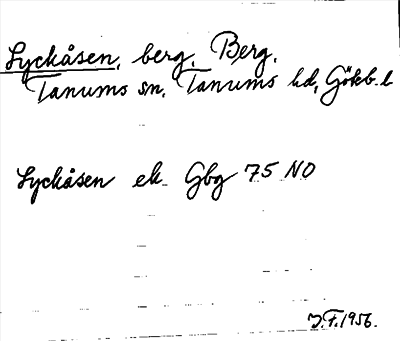 Lyckåsen, berg, Berg,
Tanums sn, Tanums hd, Göteb. l
Lyckåsen ek. Gbg 75 NO
J.F. 1956.